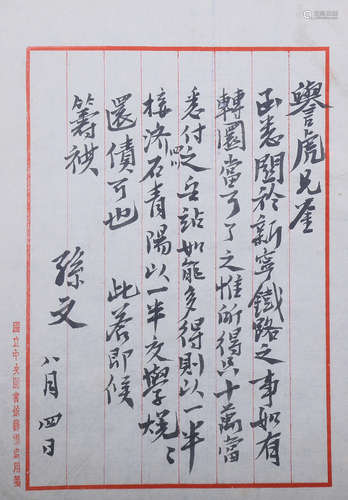 譽虎兄鉴
函悉關於新寧鐵路之事如有
轉圜當可了之惟所得只十萬當
悉付之兵站如能多得則以一半
接济石青陽以一半交學焜
還債可也 此荅即候
籌祺
孫文
八月四日